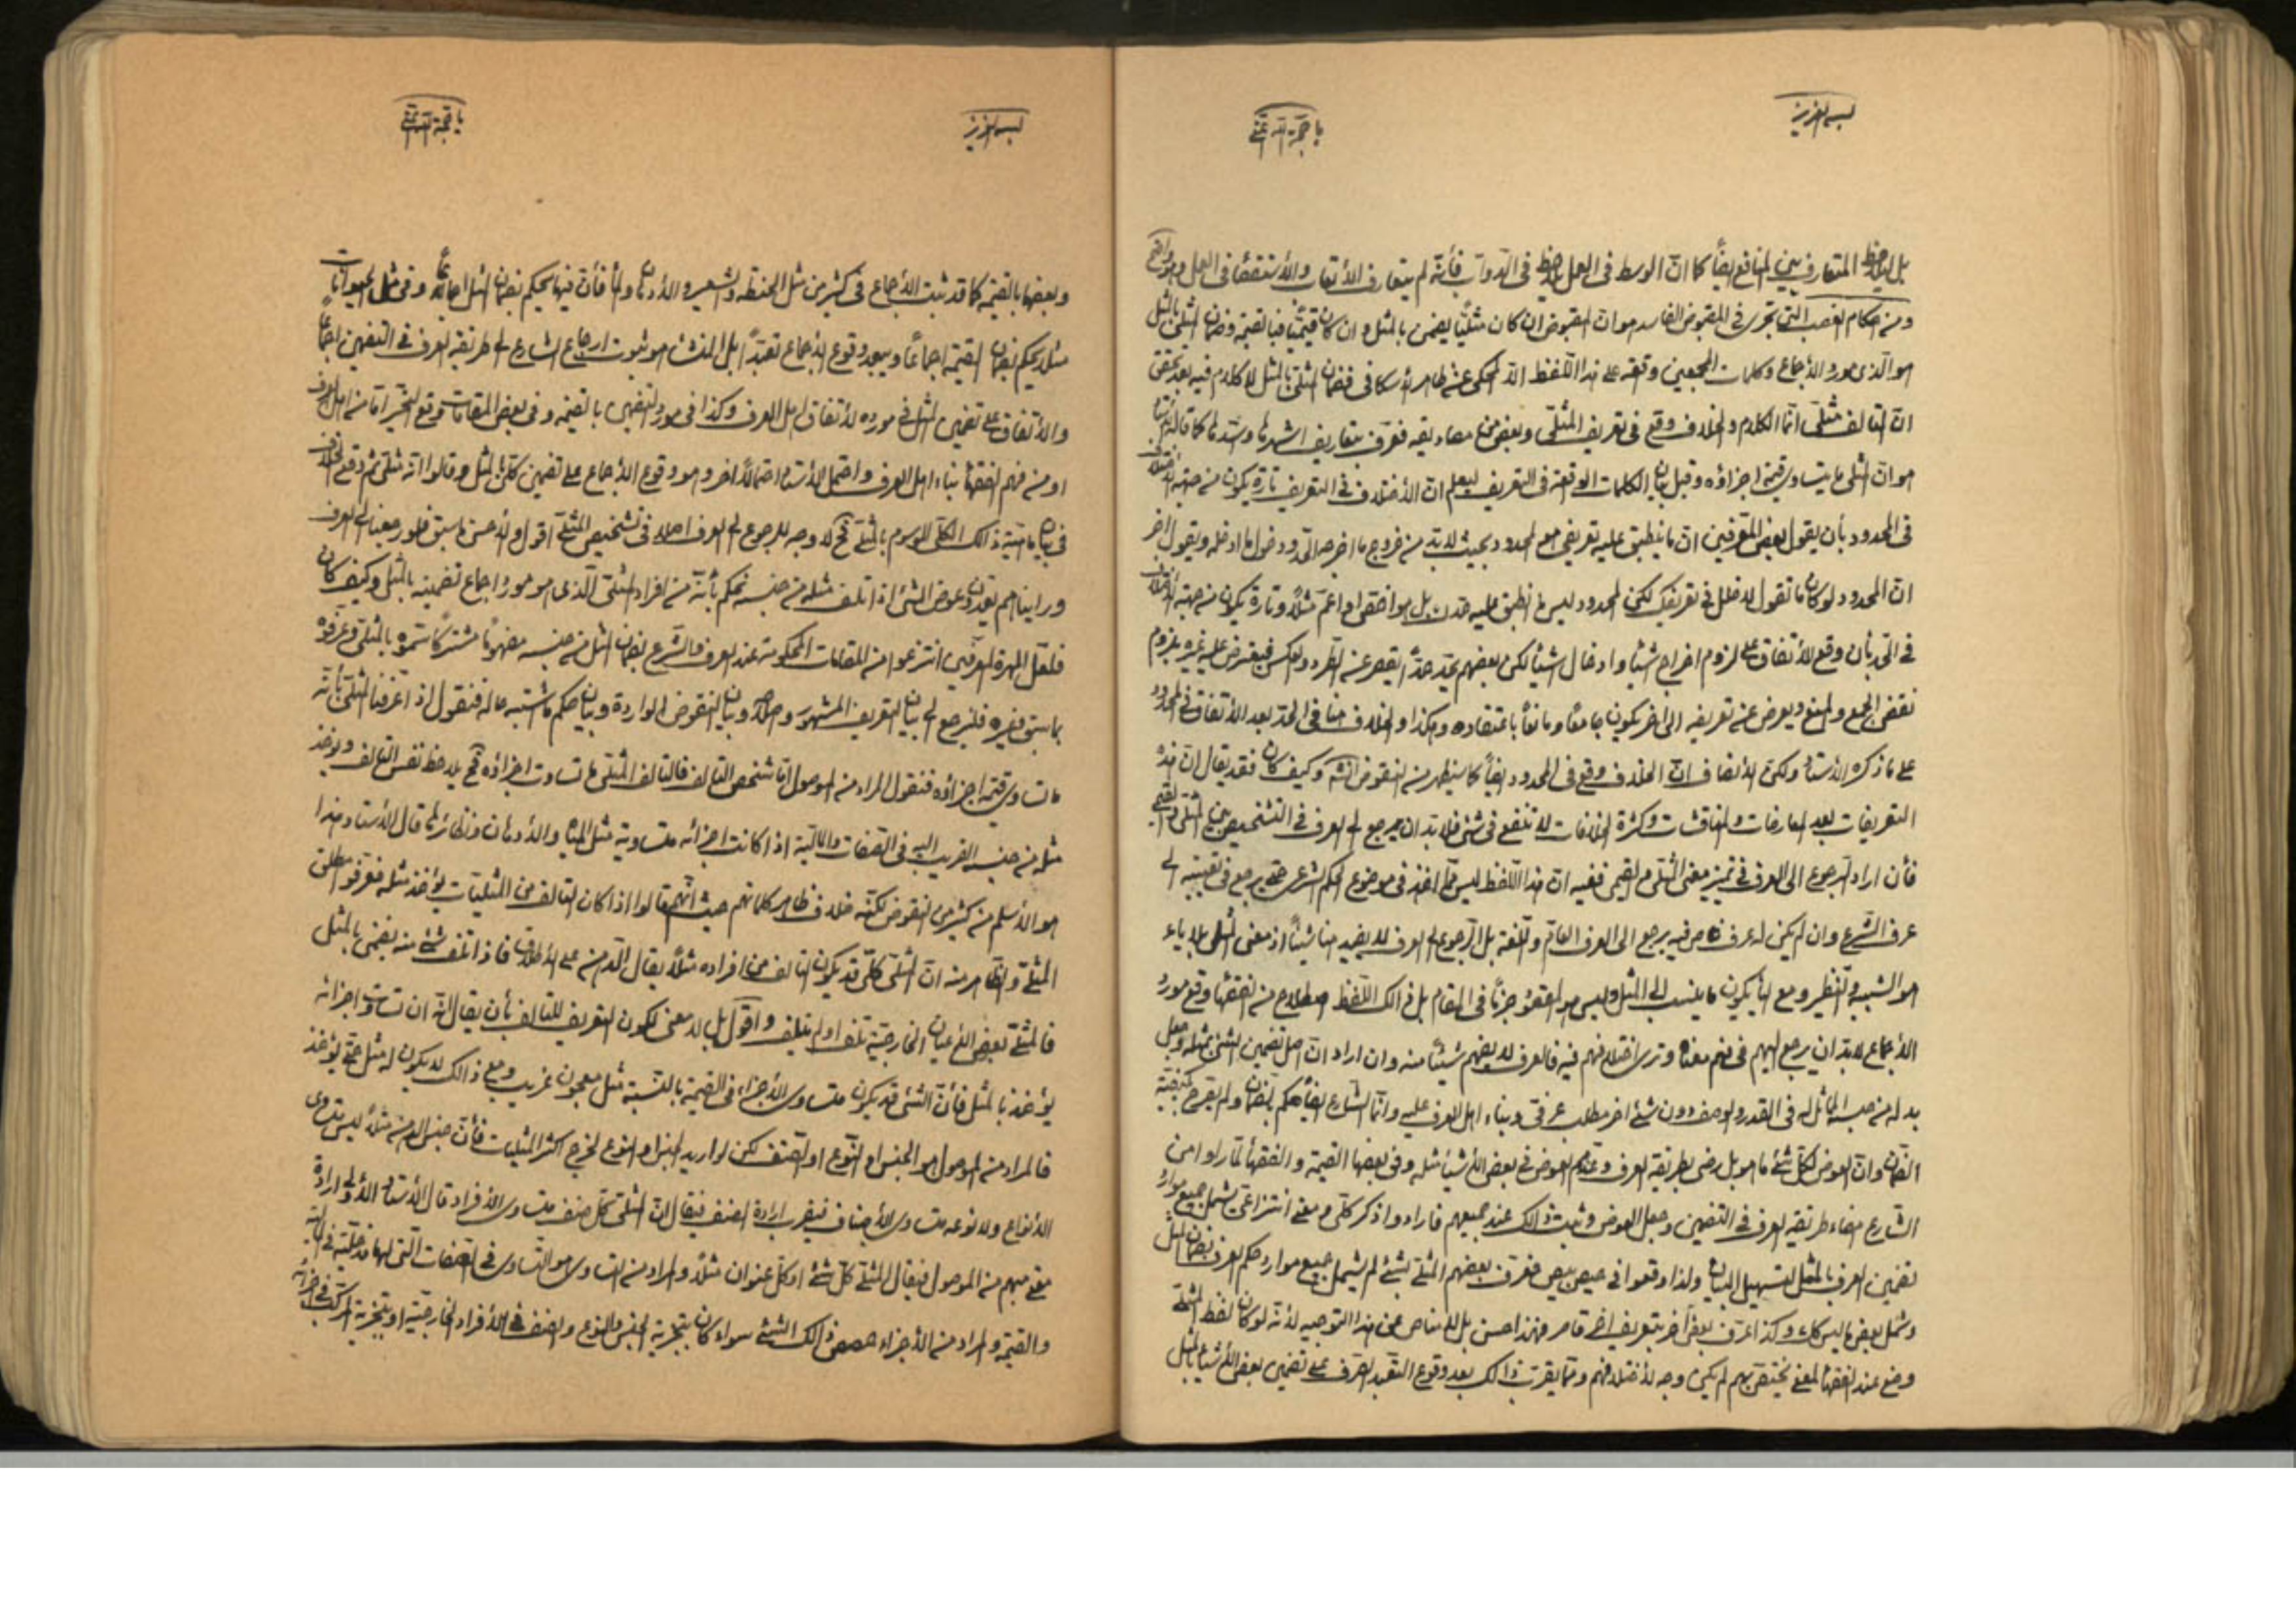 بسمه العزيز
يا حجة الله اغثنى
بل يلاحظ المتعارف بين المنافع ايضاً كما ان الوسط فى العمل يلاحظ فى الدواب فأنه لم يتعارف الأتعاب والأستقصاء فى العمل وهو واضح
ومن احكام الغصب التى تجرى فى المقبوض الفاسد هو ان المقبوض ان كان مثليّاً يضمن بالمثل وان كان قيميّاً فبالقيمة وضمان المثلى بالمثل
هو الذى مورد الأجماع وكلمات المجمعين وقعة على هذا اللفظ الّا المحكى عنه ظاهر الأسكافى فضمان المثلى بالمثل لا كلام فيه بعد تحقق
ان التالف مثلى انّما الكلام والخلاف وقع فى تعريف المثلى وبعض من مصاديقه فعرف بتعاريف اشهرها وسدّها كما قاله الأستاد
هو ان المثلى ما يتساوى قيمة اجزاؤه وقبل بيان الكلمات الواقعة فى التعريف ليعلم ان الأختلاف فى التعريف تارة يكون من جهة الأختلاف
فى المحدود بأن يقول بعض المعرفين ان ما ينطبق عليه تعريفى هو المحدود بحيث لابد من خروج ما اخرجه الحد ودخول ما ادخله ويقول اخر
ان المحدود لو كان ما تقول لا خلل فى تعريفك لكن المحدود ليس ما انطبق عليه حدك بل هو اخص او اعم مثلاً وتارة يكون من جهة الأختلاف
فى الحد بأن وقع الأتفاق على لزوم اخراج شيئاً وادخال شيئاً لكن بعضهم يحد حداً يقصر عنه الطرد والعكس فيعترض عليه غيره بلزوم
نقض الجمع والمنع ويعرض عنه تعريفه الى اخر يكون جامعاً ومانعاً باعتقاده وهكذا والخلاف هنا فى الحد بعد الأتفاق فى المحدود
على ما ذكره الأستاد ولكن الأنصاف ان الخلاف وقع فى المحدود ايضاً كما سيظهر من النقوض انشه وكيف كان فقد يقال ان هذه
التعريفات بعد المعارضات والمناقشات وكثرة الخلافات لا تنفع فى شئ فلابد ان يرجع الى العرف فى التشخيص بين المثلى والقيمى
فأن اراد الرجوع الى العرف فى تميز معنى المثلى والقيمى ففيه ان هذا اللفظ ليس ممّا اخذ فى موضوع الحكم الشرعى حتى يرجع فى تعيينه الى
عرف الشرع وان لم يكن له عرف خاص فيه يرجع الى العرف العام واللغة بل الرجوع الى العرف لا يفيد هنا شيئاً اذ معنى المثل بلا ياء
هو الشبيه والنظير ومع الياء يكون ما ينسب الى المثل وليس هو المقصود جزماً فى المقام بل فى ذالك اللفظ اصطلاح من الفقهاء وقع مورد
الأجماع لابد ان يرجع اليهم فى فهم معناه وترى اختلافهم فيه فالعرف لا يفهم شيئاً منه وان اراد ان اصل تضمين الشئ بمثله وجعل
بدله من جنسه المماثل له فى القدر والوصف دون شئ اخر مطلب عرفى وبناء اهل العرف عليه وانّما الشارع ايضاً حكم بالضمان ولم يتعرض كيفية
الضمان وان العوض لكل شئ ما هو بل رضى بطريقة العرف وعندهم العوض فى بعض الأشياء مثله وفى بعضها القيمة والفقهاء لمّا راوا من
الشارع امضاء طريقة العرف فى التضمين وجعل العوض وثبت ذالك عند جميعهم فارادوا ذكر كلى ومعنى انتزاعى يشمل جميع موارد
تضمين العرف بالمثل لتسهيل البيان ولذا وقعوا فى حيص بيص فعرف بعضهم المثلى بشئ لم يشمل جميع موارد حكم العرف بضمان المثل
وشمل بعض ما ليس كك وكذا عرف بعض اخر بتعريف اخر قاصر فهذا حسن بل لا مناص عن هذا التوجيه لأنه لو كان لفظ المثلى
وضع عند الفقهاء لمعنى يختص بهم لم يكن وجه لأختلافهم وممّا يقرب ذالك بعد وقوع التعبد الصرف على تضمين بعض الأشياء بالمثل
بسمه العزيز
يا حجة الله اغثنى
وبعضها بالقيمة كما قد ثبت الأجماع فى كثير من مثل الحنطة والشعير والأدهان والماء فأن فيها يحكم بضمان المثل اجماعاً وفى مثل الحيوانات
مثلا يحكم بضمان القيمة اجماعاً ويبعد وقوع الأجماع تعبداً بل المنشأ هو ثبوت ارجاع الشارع الى طريقة العرف فى التضمين اجماعاً
والأتفاق على تضمين المثل فى مورده لأتفاق اهل العرف وكذا فى مورد التضمين بالقيمة وفى بعض المقامات وقع التحير اما من اهل العرف
او من فهم الفقهاء بناء اهل العرف واحتمل الأستاد احتمالاً اخر وهو وقوع الأجماع على تضمين كلى المثل وقالوا انه مثلى ثم وقع الخلاف
فى بيان ماهية ذالك الكلى الموسوم بالمثلى فح لا وجه للرجوع الى العرف اصلا فى تشخيص المثلى اقول والأحسن ما سبق فلو رجعنا الى العرف
ورايناهم يعدون عوض الشئ اذا تلف مثله من جنسه نحكم بأنه من افراد المثلى الذى هو مورد اجماع تضمينه بالمثل وكيف كان
فلعل المهرة العرفين انتزعوا من المقامات المحكومة عند العرف والشرع بضمان المثل من جنسه مفهوماً مشتركاً سموه بالمثلى وعرفوه
بما سبق وغيره فلنرجع الى بيان التعريف المشهور واصلاحه وبيان النقوض الواردة وبيان حكم ما اشتبه حاله فنقول اذا عرفنا المثلى بأنه
ما تساوى قيمة اجزاؤه فنقول المراد من الموصول اما شخص التالف فالتالف المثلى ما تساوت اجزاؤه فح يلاحظ نفس التالف ويؤخذ
مثله من جنسه القريب اليه فى الصفات والمالية اذا كانت اجزائه متساوية مثل الماء والأدهان ونظائرها قال الأستاد هذا
هو الأسلم من كثير من النقوض لكنه خلاف ظاهر كلماتهم حيث انهم قالوا اذا كان التالف من المثليات يؤخذ مثله فعرفوا مطلق
المثلى والظاهر منه ان المثلى كلى قد يكون التالف من افراده مثلاً يقال الدهن على الأطلاق فاذا تلف شئ منه يضمن بالمثل
فالمثلى بعض الأعيان الخارجية تلف او لم يتلف واقول بل لا معنى لكون التعريف للتالف بأن يقال انه ان تساوت اجزائه
يؤخذ بالمثل فأن الشئ قد يكون متساوى الأجزاء فى القيمة بالنسبة مثل معجون غريب ومع ذالك لا يكون له مثل حتى يؤخذ
فالمراد من الموصول هو الجنس او النوع او الصنف لكن لو اريد الجنس او النوع لخرج اكثر المثليات فأن جنس الدهن مثلا ليس متساوى
الأنواع ولا نوعه متساوى الأصناف فيقرب ارادة الصنف فيقال ان المثلى كل صنف متساوى الأفراد قال الأستاد الأولى ارادة
معنى مبهم من الموصول فيقال المثلى كل شئ او كل عنوان مثلاً والمراد من التساوى هو التساوى فى الصفات التى لها مدخلية فى المالية
والقيمة والمراد من الأجزاء حصص ذالك الشئ سواء كان بتجزية الجنس والنوع والصنف فى الأفراد الخارجية او بتجزية المركب فى اجزائه